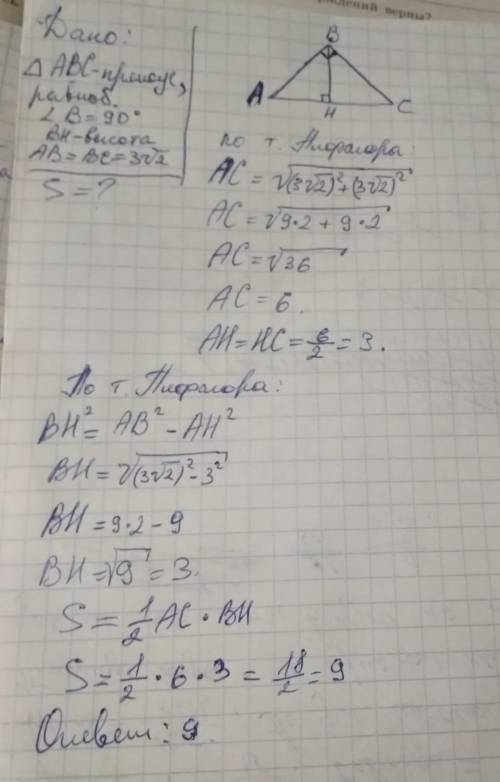 рждений верны?
Дано:
△ ABC-прямоуг,
равноб.
∠B=90°
BH-высота
AB=BC=3√2
S=?
B
A
H
C
По т. Пифагора:
AC=√(3√2)²+(3√2)²
AC=√9·2+9·2
AC=√36
AC=6.
AH=HC=6/2=3.
По т. Пифагора:
BH²=AB²-AH²
BH=√(3√2)²-3²
BH=9·2-9
BH=√9=3.
S=1/2AC·BH
S=1/2·6·3=18/2=9
Ответ: 9.